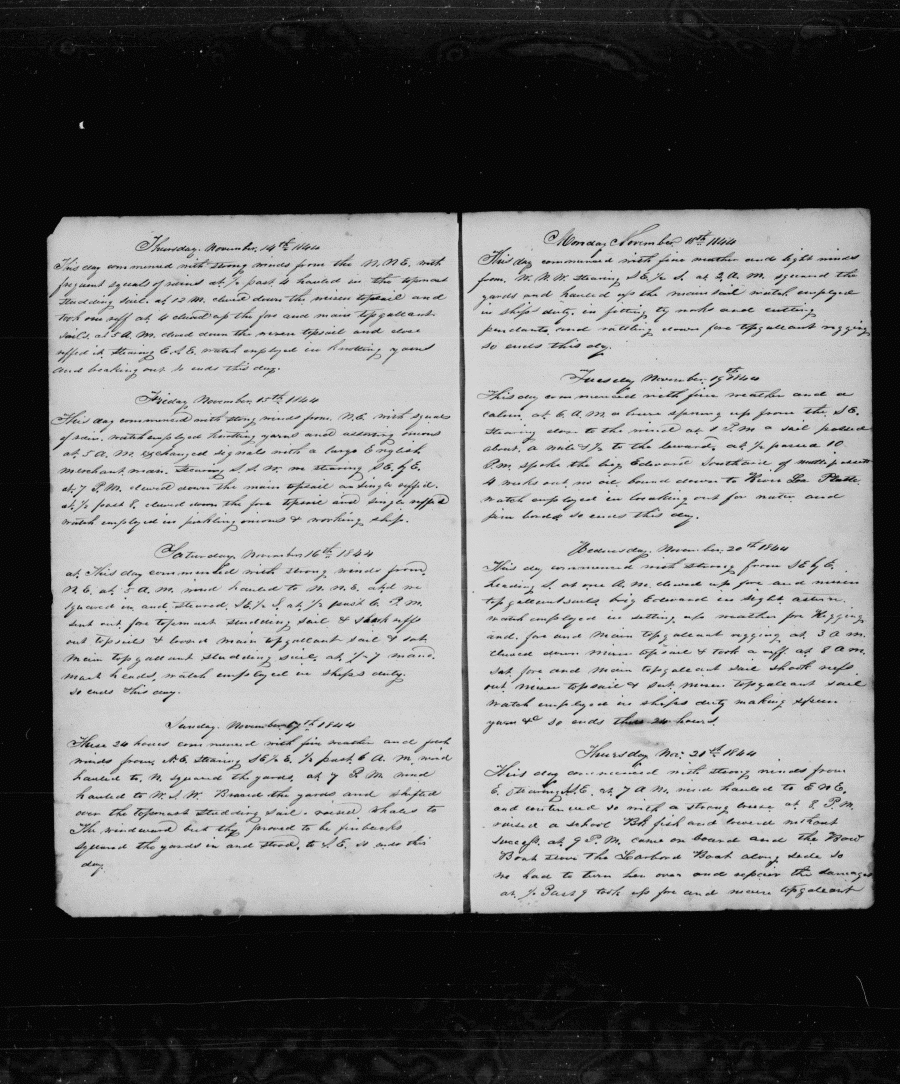 Thursday November 14th 1844
This day commenced with strong winds from the N.N.E. with
frequent squals of rains at 1/2 past 4 hauled in the topmast
studding sails at 12 M. clued down the mizen topsail and
took one reff at 4 clued up the fore and main topgallant
sails at 5 A.M. clued down the mizen topsail and close
reffed it Stearing E.S.E. watch employed in knotting yarns
and breaking out so ends this day.
Friday November 15th 1844
This day commenced with strong winds from N.E. with squals
of rain, watch employed knotting yarns and assorting onions
at 5 A.M. exchanged signals with a large English
merchant man. Stearing S.S.W. we stearing SE by E.
at 7 P.M. clewed down the main topsail & single reff'd.
at 1/2 past 8 clewed down the fore topsail and single reff'd
watch employed in pickling onions & working ship.
Saturday November 16th 1844
at This day commenced with strong winds from
N.E. at 5 A.M. wind hauled to N.N.E. and we
squared in and steered SE 1/2 S. at 1/2 past 6 P.M.
sent out fore topmast studding sail & shook reffs
out topsails & loosed main topgallant sail & set
main topgallant studding sail at 1/2 7 mand
mast heads, watch employed in ships duty.
so ends this day.
Sunday November 17th 1844
These 24 hours commenced with fine weather and fresh
winds from N.E. stearing SE 1/2 E. 1/2 past 6 A.M. wind
hauled to N. squared the yards, at 7 P.M. wind
hauled to W.S.W. Braced the yards and shifted
over the topmast studding sail. raised whales to
the windward but they proved to be finbacks
squared the yards in and stood to S.E. so ends this
day
Monday November 18th 1844
This day commenced with fine weather and light winds
from W.N.W. stearing SE 1/2 S. at 2 A.M. squared the
yards and hauled up the mainsail watch employed
in ships duty in fitting and cutting
pendants and rattling down fore topgallant rigging
so ends this day.
Tuesday November 19th 1844
This day commenced with fine weather and a
calm at 6 A.M. a breeze sprung up from the SE.
stearing close to the wind at 1 P.M. a sail passed
about a mile & 1/2 to the leeward, at 1/2 passed 10
P.M. spoke the brig Edward Southard of
4 weeks out no oil bound down to River La Platte
watch employed in breaking out for water and
so ends this day.
Wednesday November 20th 1844
This day commenced with strong from SE by E.
heading S. at one A.M. clewed up fore and mizen
topgallant sails brig Edward in sight astern
watch employed in setting up Rigging
and fore and main topgallant rigging at 3 A.M.
clued down mizen topsail & took a reff at 8 A.M.
set fore and main topgallant sail shook reefs
out mizen topsail & set mizen topgallant sail
watch employed in ships duty making spun
yarn &c so ends these 24 hours
Thursday Nov. 21st 1844
This day commenced with strong winds from
E. stearing N.E. at 7 A.M. wind hauled to ENE.
and continued so with a strong breeze at 8 P.M.
raised a school Bk fish and lowered without
success. at 9 P.M. came on board and the Bow
Boat stove the Larboard Boat along side so
we had to turn her over and repair the damages
at 1/2 Past 9 took up fore and mizen topgallant